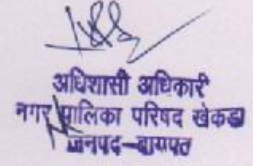 अधिशासी अधिकारी
नगर पालिका परिषद खेकडा
जनपद-बागपत